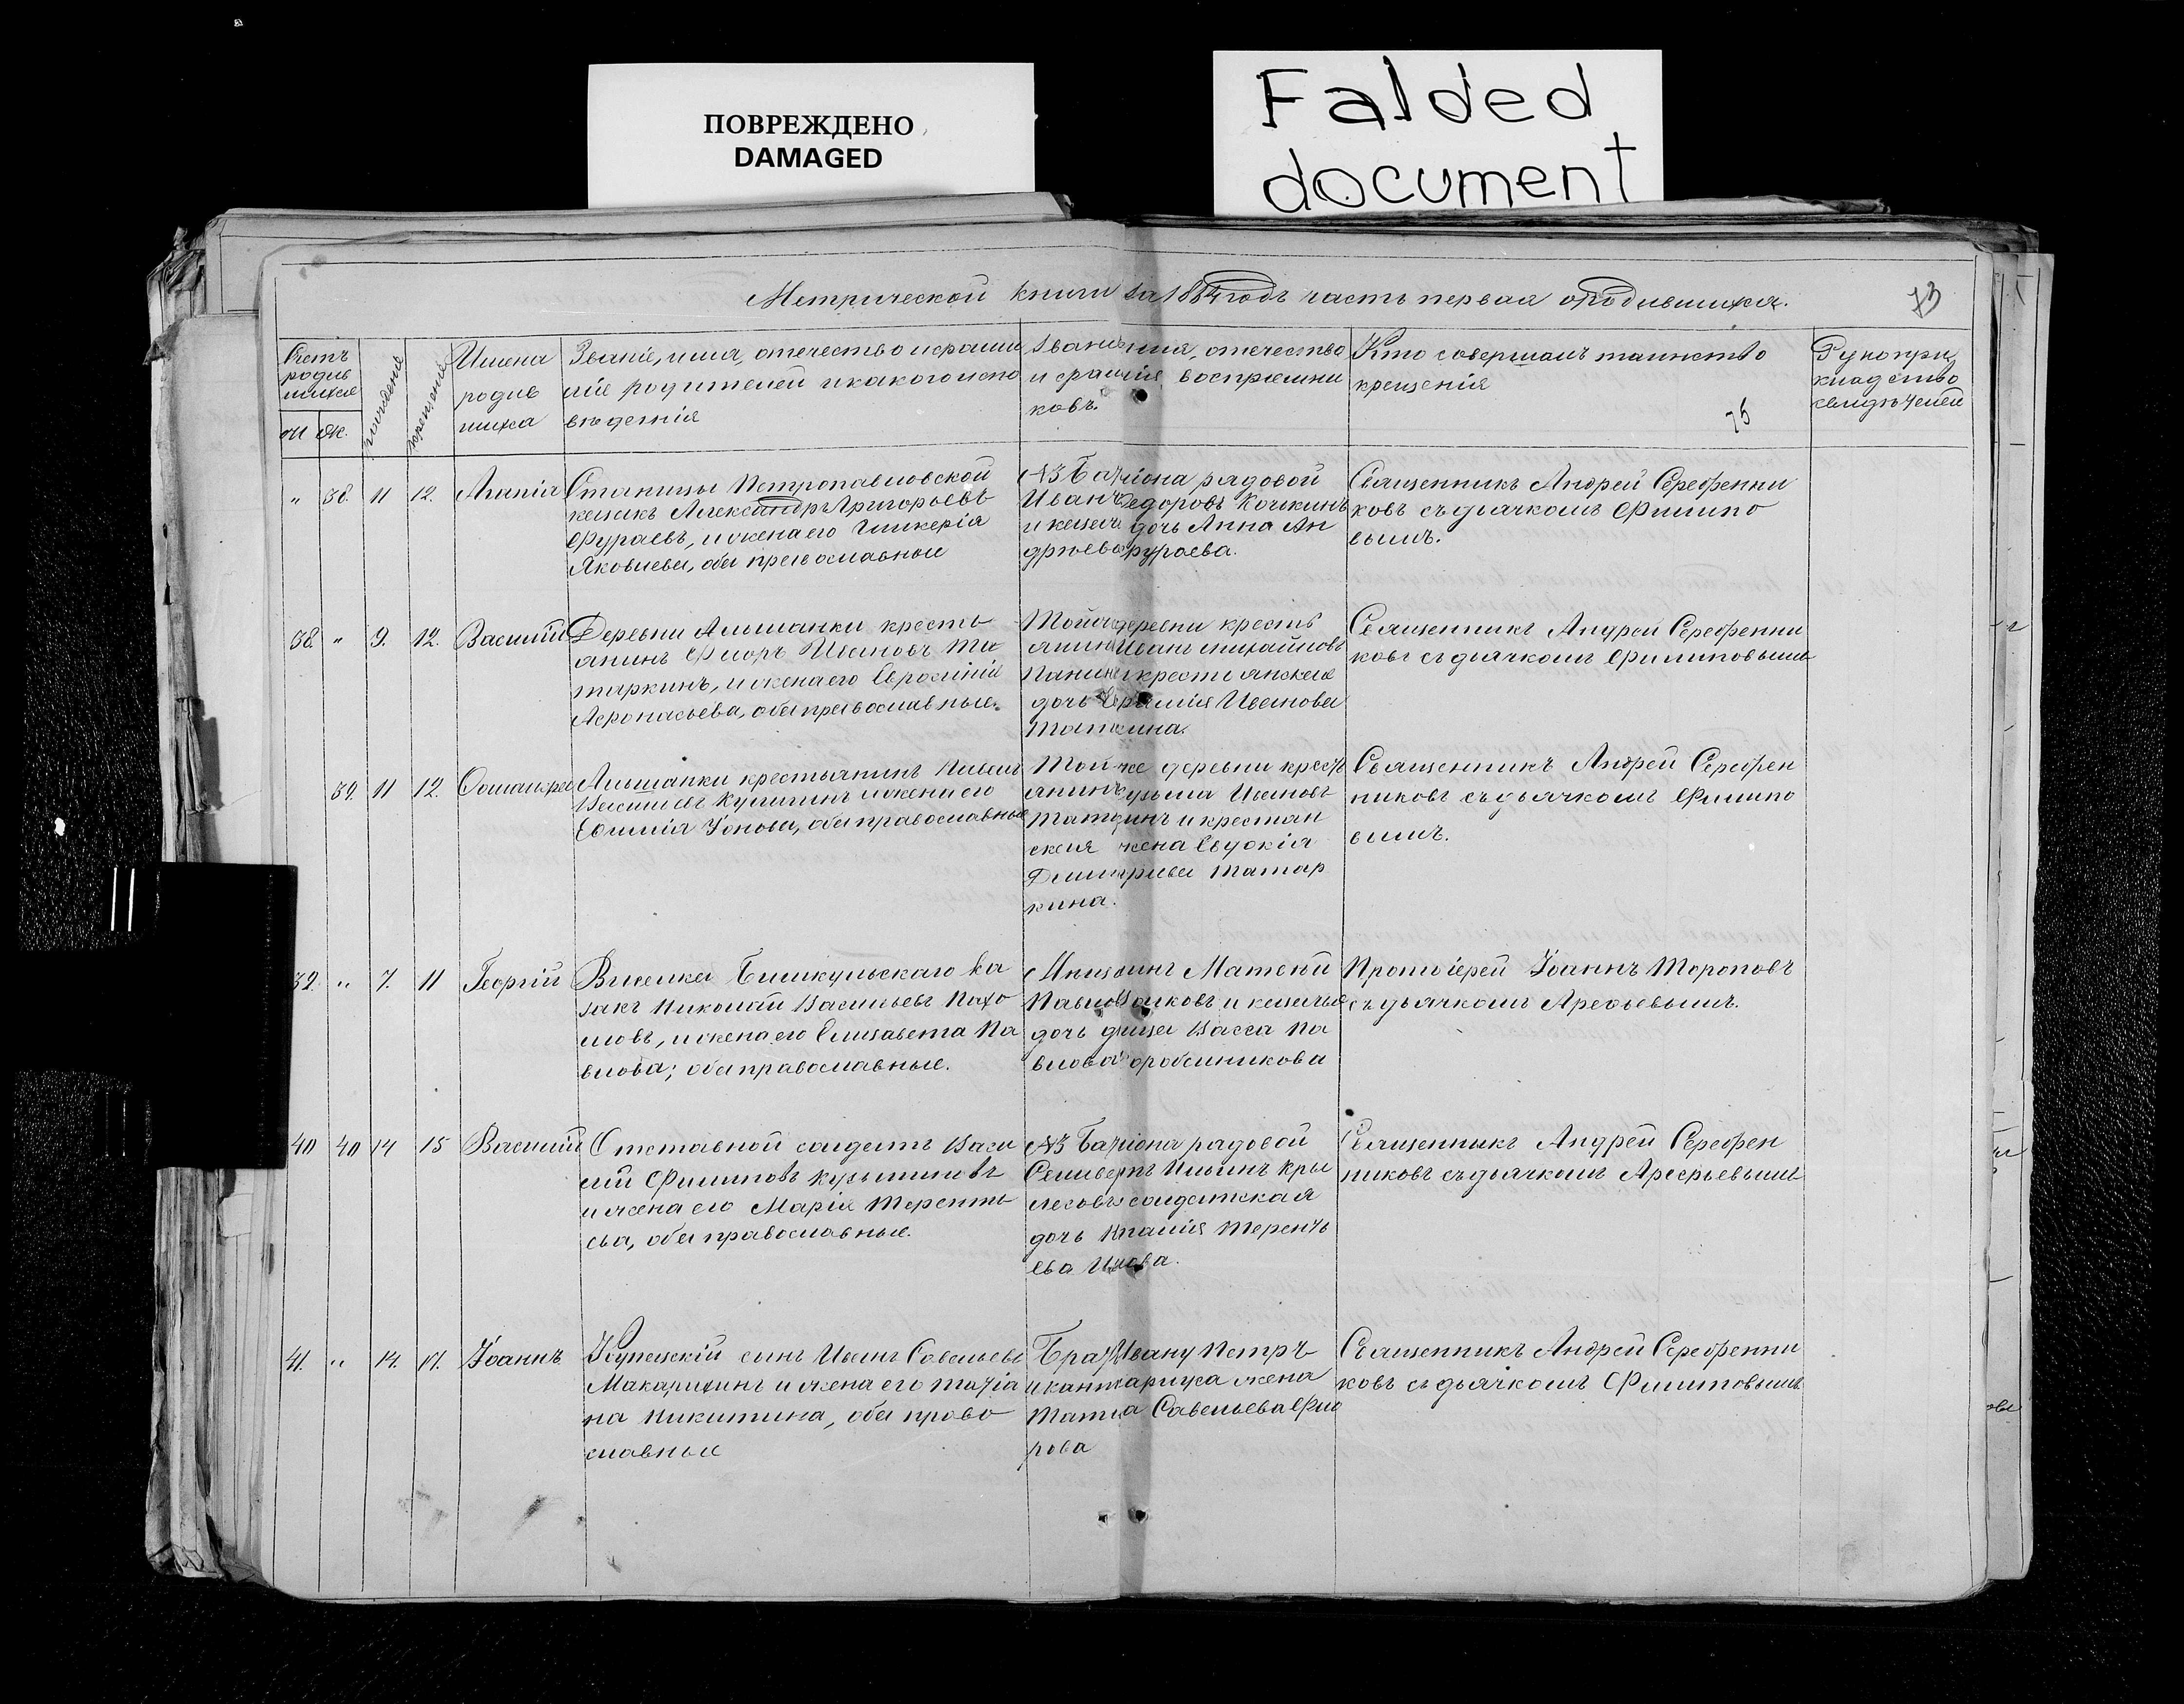 ПОВРЕЖДЕНО
DAMAGED
Falded
document
Метрической книги за 1884 годъ часть первая о родившихся.
73
Счетъ
родив
шихся
м.
ж.
рожденія
крещенія
Имена
родив
шихся
Званіе, имя, отечество и фами
лія родителей и какого испо
вѣденія
Званіе имя, отечество
и фамилія воспріемни
ковъ.
Кто совершалъ таинство
крещенія
75
Рукопри
кладство
свидѣтелей
„ 38. 11 12. Агапія
Станицы Петропавловской
казакъ Александръ Григорьевъ
Фураевъ, и жена его Гликерія
Яковлева, оба православные
№3 Батиона рядовой
Иванъ Федоровъ Кочкинъ
и казач дочь Анна Ан
дреева Фураева.
Священникъ Андрей Серебренни
ковъ съ дьячкомъ Филипо
вымъ.
38. „ 9. 12. Василій
Деревни Альшанки кресть
янинъ Флоръ Ивановъ Та
таркинъ, и жена его Евросинія
Афонасьева, оба православные.
Той же деревни кресть
янинъ Иванъ Михайловъ
Панинъ и крестьянская
дочь Ивановa
Священникъ Андрей Серебренни
ковъ съ дьячкомъ Филиповымъ
39. 11 12.
Альшанки крестьянинъ Павелъ
Васильевъ и жена его
Іонова, оба православные
Той же деревни кресть
янинъ Кузьма Ивановъ
и крестьян
ская жена Евдокія
Дмитріева Татар
кина.
Священникъ Андрей Серебрен
никовъ съ дьячкомъ Филипо
вымъ.
39. „ 7. 11 Георгій
Виселка Бишкульскаго ка
закъ Николай Васильевъ Пахо
мовъ, и жена его Елизавета Па
влова; оба православные.
Мещанинъ Матвей
Павловъ Волковъ и казачья
дочь девица Васса Па
влова Коробейникова
Протоіерей Іоаннъ Тороповъ
съ дьячкомъ Арефьевымъ.
40 40 14 15 Василій
Отставной солдатъ Васи
лій Филиповъ Кузьминовъ
и жена его Марія Теренть
ева, оба православные.
№3 Батиона рядовой
Селиверстъ Ильинъ Кры
ласовъ и солдатская
дочь Терентъ
ева
Священникъ Андрей Серебрен
никовъ съ дьячкомъ Арефьевымъ
41. „ 14. 17. Іоаннъ
Купецскій сынъ Иванъ Савельевъ
Макарихинъ и жена его Татіа
на Никитина, оба право
славные
Братъ Ивану Петръ
и кантариуса жена
Савельева Фло
рова
Священникъ Андрей Серебренни
ковъ съ дьячкомъ Филиповымъ